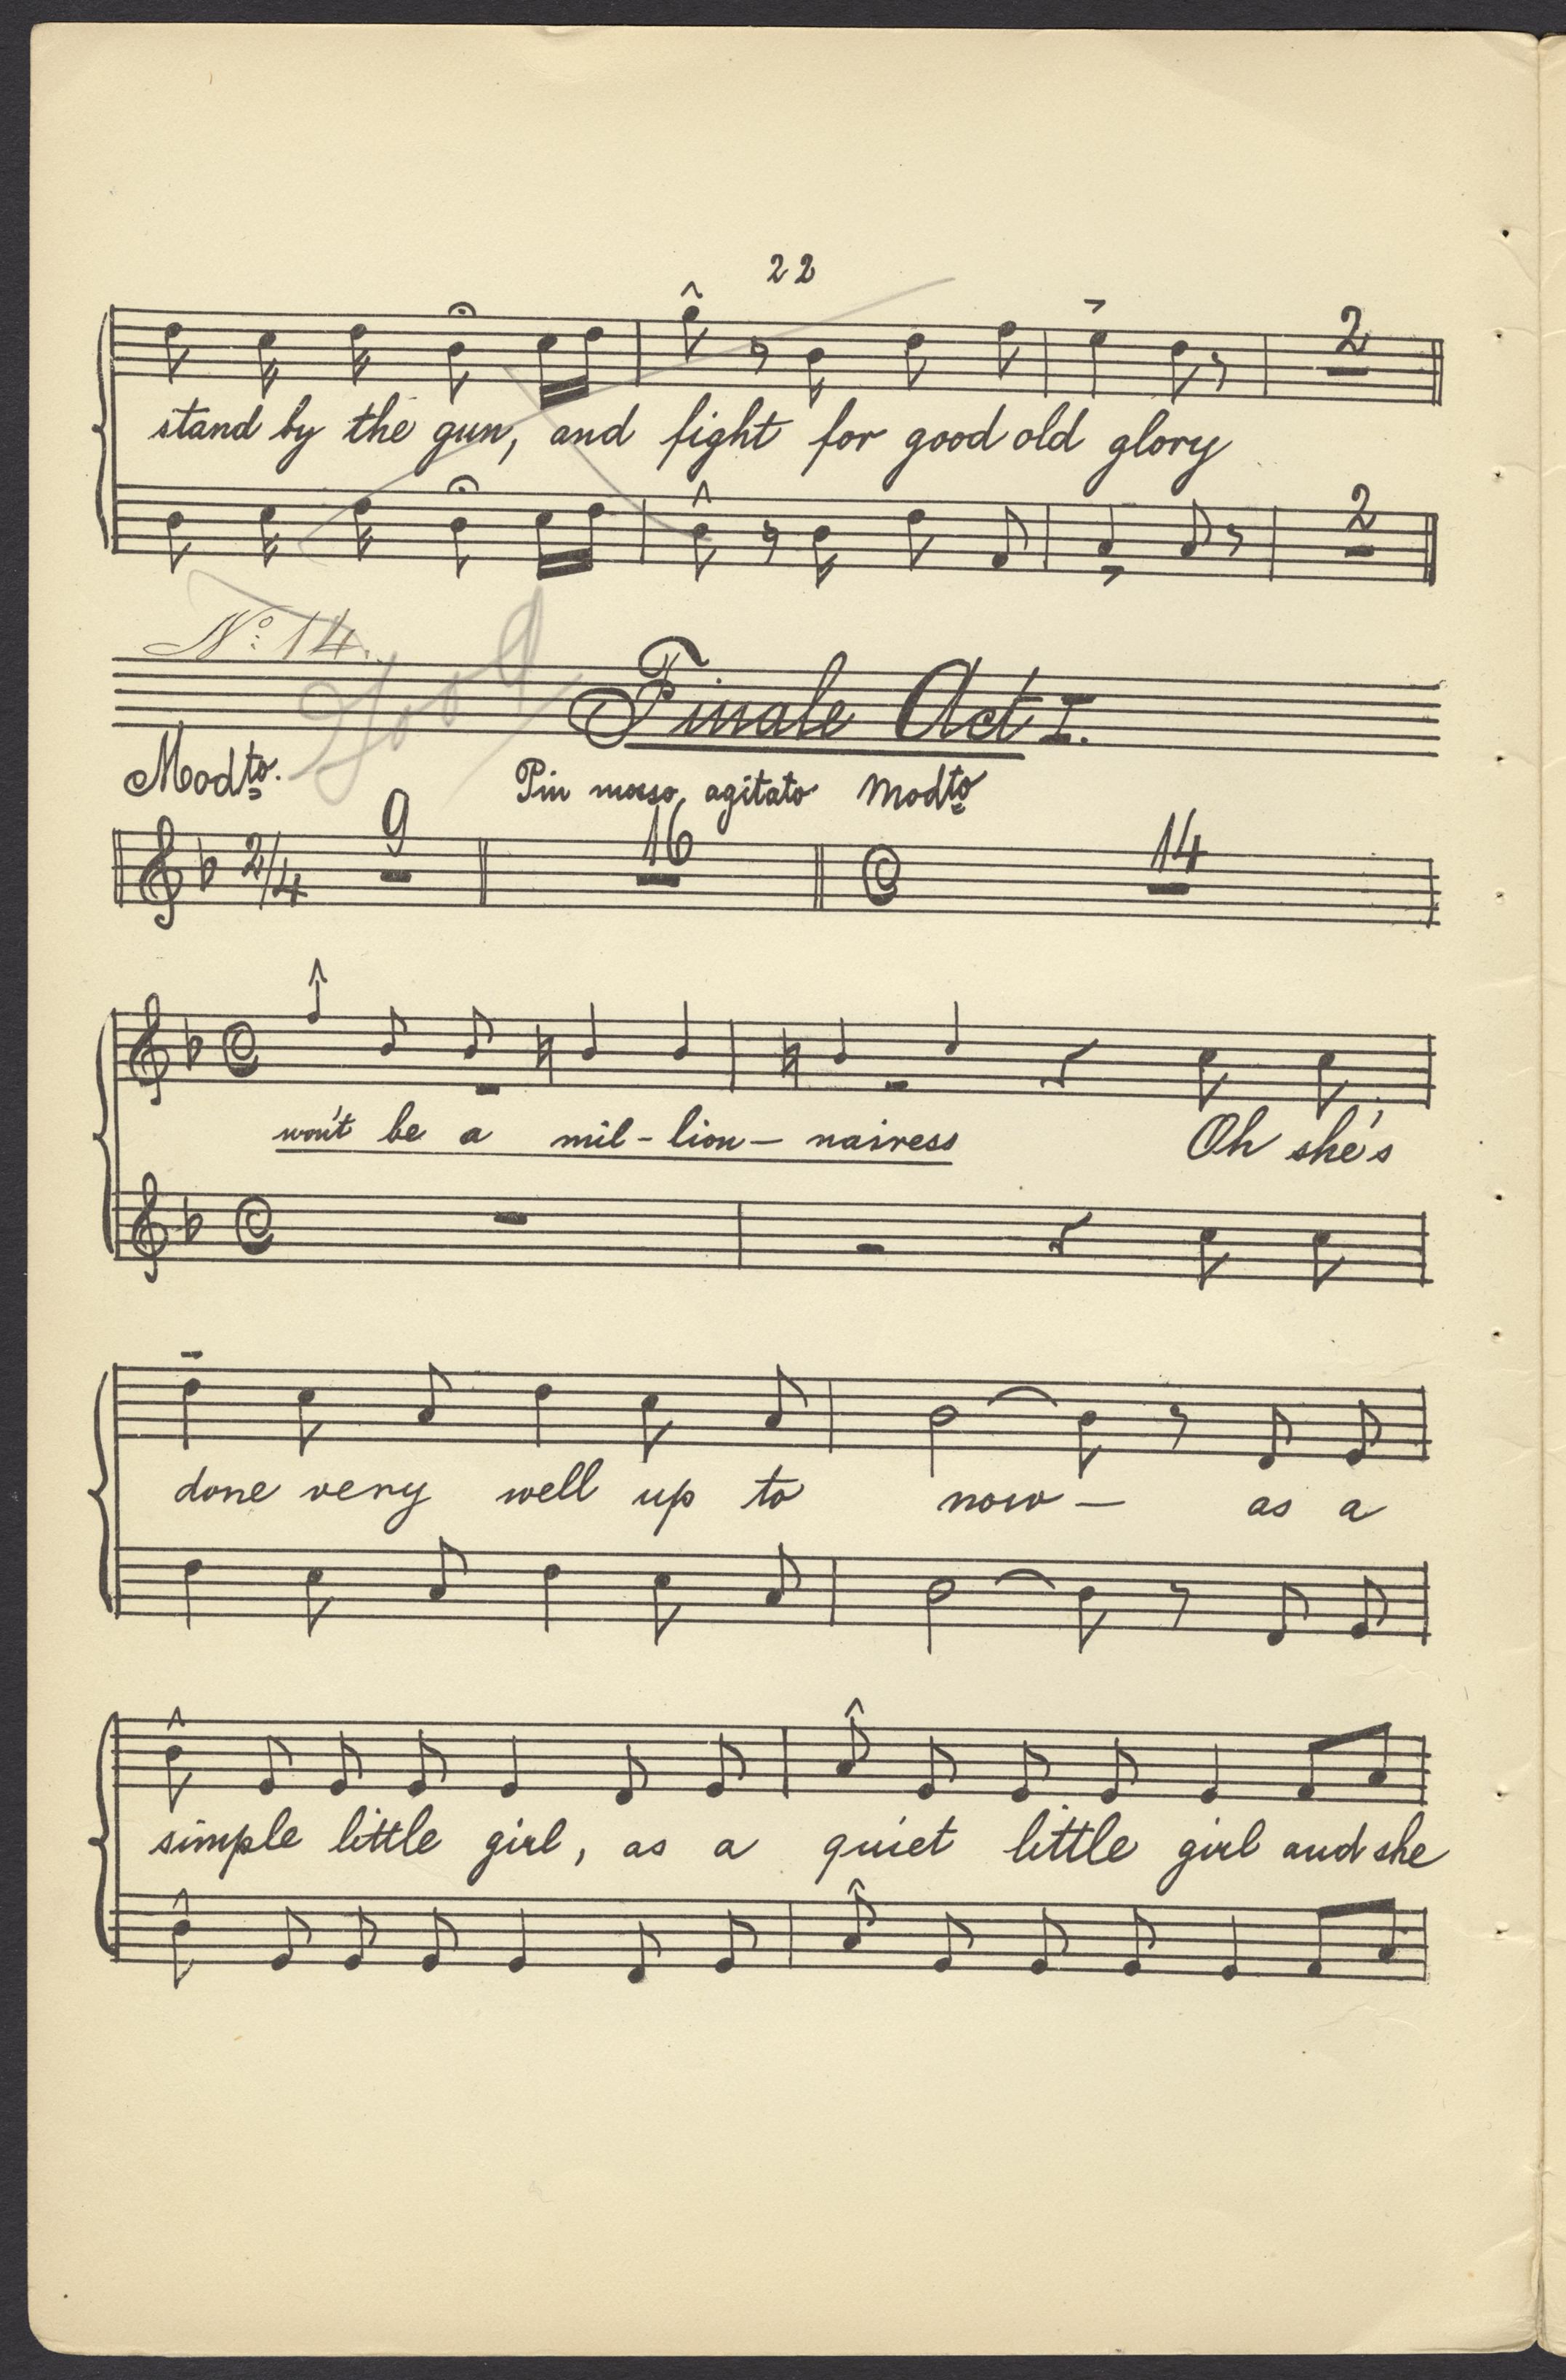 22
2
stand by the gun, and fight for good old glory
2
No. 14.
Finale Act I.
Modto. Piu mosso, agitato Modto
2/4 9 16 C 14
C
won't be a mil - lion - nairess Oh she's
C
done very well up to now — as a
simple little girl, as a quiet little girl and she